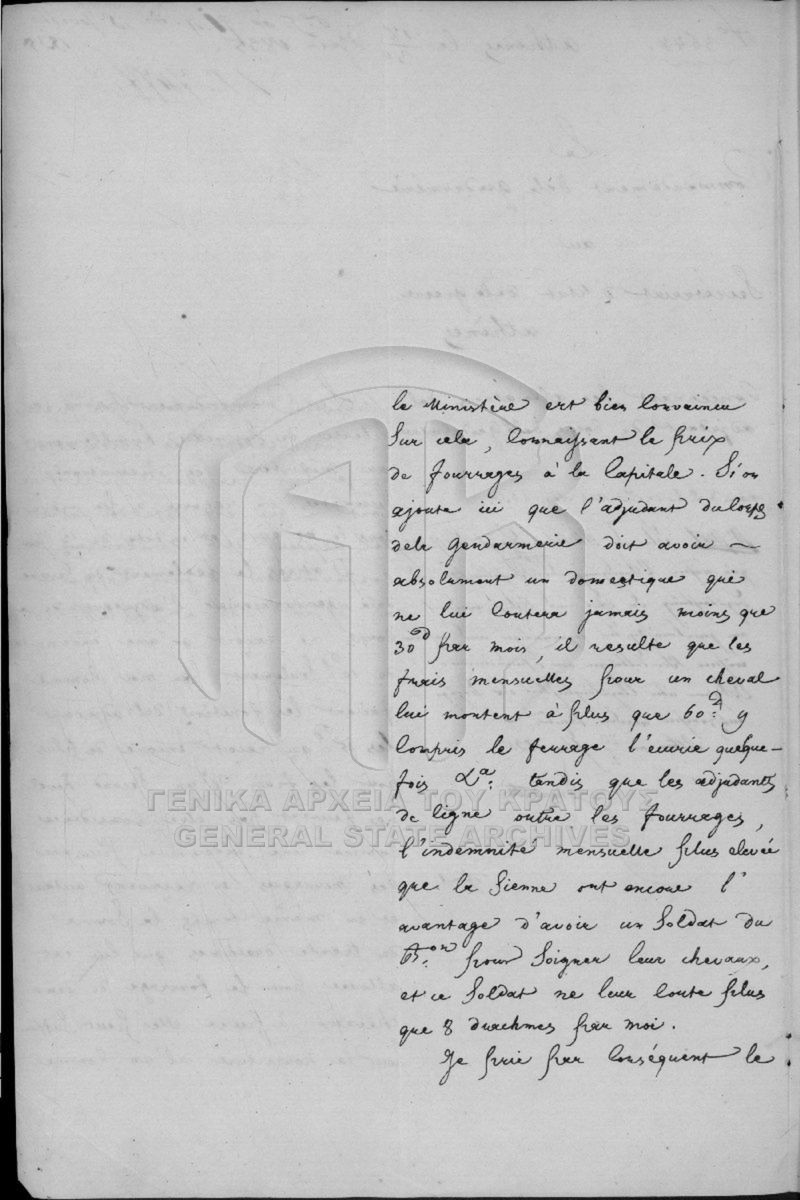 le Ministère est bien convaincu
sur cela, connaissant le prix
de fourrages à la Capitale. Si on
ajoute ici que l'adjudant du Corps
dela Gendarmerie doit avoir
absolument un domestique qui
ne lui coutera jamais moins que
30 d par mois, il resulte que les
frais mensuelles pour un cheval
lui montent à plus que 60 d. y
compris le ferrage l'ecurie quelque-
fois &a: tandis que les adjudants
de ligne outre les fourrages,
l'indemnité mensuelle plus elevée
que la sienne ont encore l'
avantage d'avoir un Soldat du
B.on pour soigner leur chevaux,
et ce Soldat ne leur coute plus
que 8 drachmes par moi.
Je prie par conséquent le
ΓΕΝΙΚΑ ΑΡΧΕΙΑ ΤΟΥ ΚΡΑΤΟΥΣ
GENERAL STATE ARCHIVES